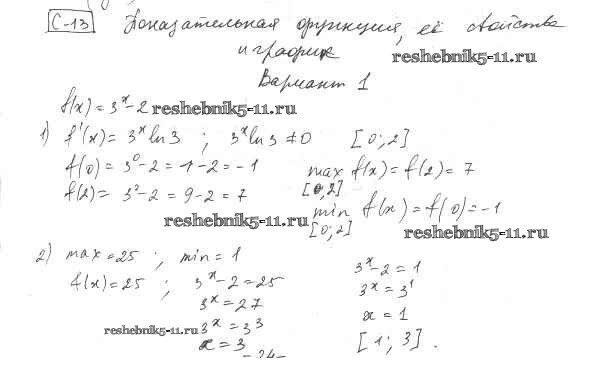 С-13 Показательная функция, её свойства
и график
reshebnik5-11.ru
Вариант 1
f(x) = 3^x - 2 reshebnik5-11.ru
1) f'(x) = 3^x ln 3 ; 3^x ln 3 ≠ 0 [0; 2]
f(0) = 3^0 - 2 = 1 - 2 = -1
f(2) = 3^2 - 2 = 9 - 2 = 7
max f(x) = f(2) = 7
[0; 2]
min f(x) = f(0) = -1
[0; 2]
reshebnik5-11.ru
reshebnik5-11.ru
2) max = 25 ; min = 1
f(x) = 25 ; 3^x - 2 = 25
3^x = 27
reshebnik5-11.ru 3^x = 3^3
x = 3
3^x - 2 = 1
3^x = 3^1
x = 1
[1; 3].
-24-